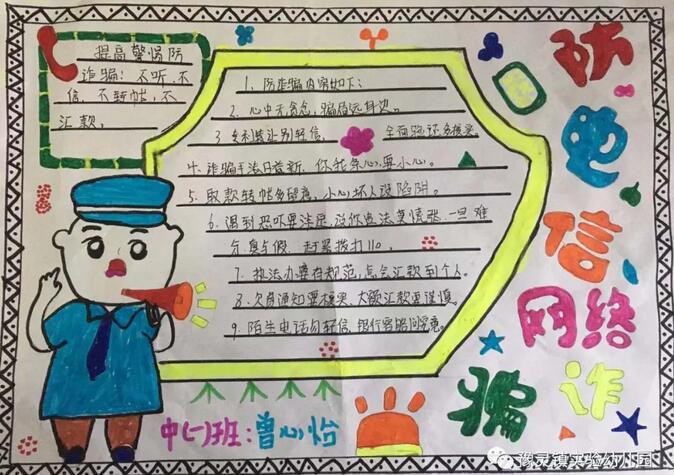 提高警惕防
诈骗：不听、不
信、不转帐、不
汇款。
防电信网络诈骗
1、防诈骗内容如下：
2、心中无贪念，骗局远身边。
轻信，
4、诈骗手法日益新，你我条心要小心。
5、取款转帐多留意，小心坏人设陷阱。
6、遇到恐吓要注意，一旦难
分真与假，赶紧拨打110，
7、执法办案有规范，怎会汇款到个人。
8、欠费通知要核实，大额汇款更谨慎。
9、陌生电话勿轻信，银行客服问究竟。
中(一)班：曾心怡
豫灵镇实验幼儿园